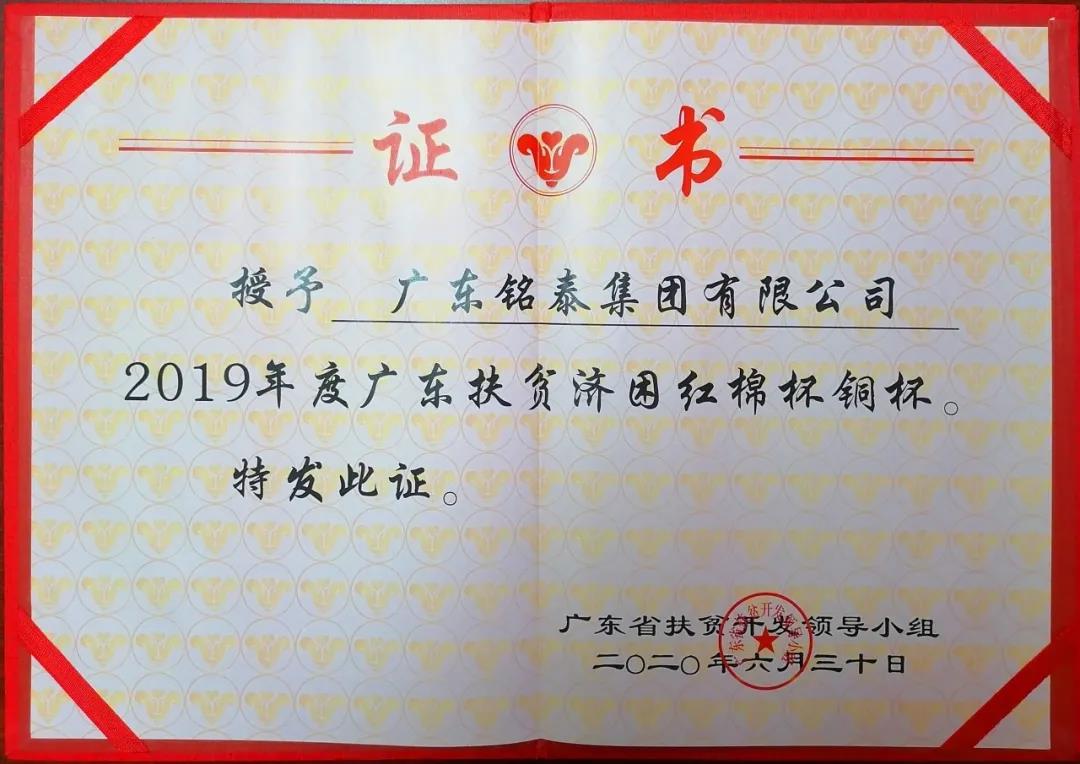 证书
授予 广东铭泰集团有限公司
2019年度广东扶贫济困红棉杯铜杯。
特发此证。
广东省扶贫开发领导小组
二〇二〇年六月三十日